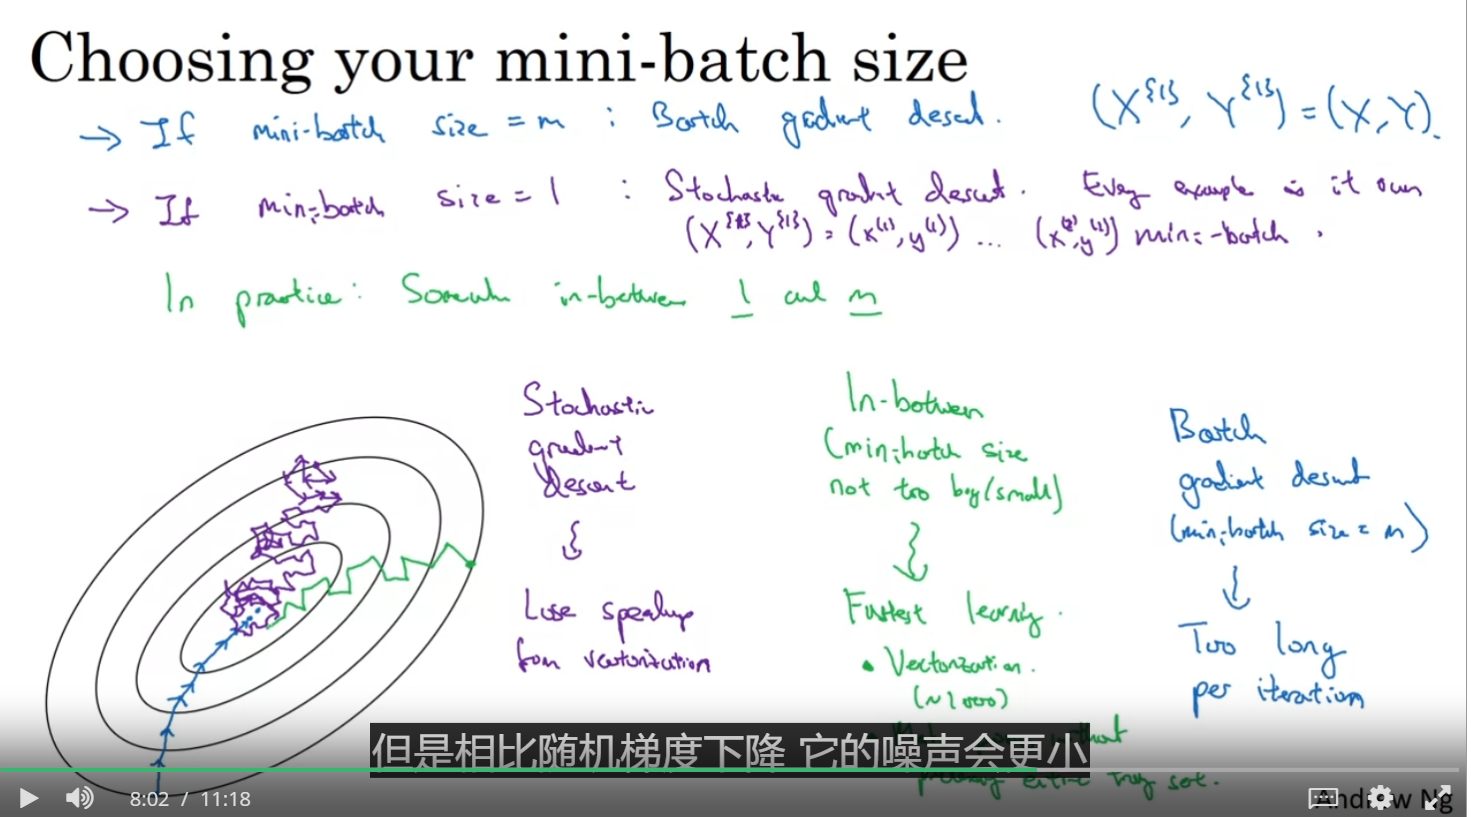 Choosing your mini-batch size
→ If mini-batch size = m : Batch gradient descent. (X^{1}, Y^{1}) = (X, Y).
→ If mini-batch size = 1 : Stochastic gradient descent. Every example is it own
(X^{1}, Y^{1}) = (x^(1), y^(1)) ... (x^(2), y^(2)) mini-batch.
In practice: Somewhere in-between 1 and m
Stochastic
gradient
descent
Lose speedup
from vectorization
In-between
(mini-batch size
not too big/small)
Fastest learning.
• Vectorization.
(~1000)
without
processing entire training set.
Batch
gradient descent
(mini-batch size = m)
Too long
per iteration
但是相比随机梯度下降 它的噪声会更小
8:02 / 11:18
Andrew Ng